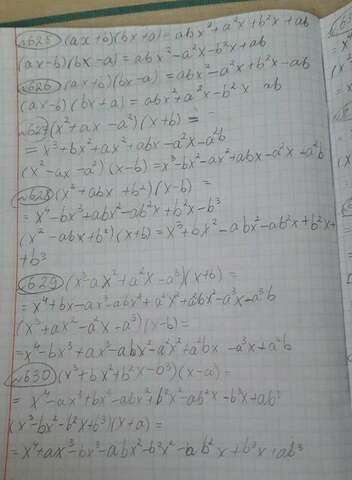 №625 (ax+b)(bx+a)=abx²+a²x+b²x+ab
(ax-b)(bx-a)=abx²-a²x-b²x+ab
№626 (ax+b)(bx-a)=abx²-a²x+b²x-ab
(ax-b)(bx+a)=abx²+a²x-b²x ab
№627 (x²+ax-a²)(x+b)=
=x³+bx²+ax²+abx-a²x-a²b
(x²-ax-a²)(x-b)=x³-bx²-ax²+abx-a²x+a²b
№628 (x³+abx+b²)(x-b)=
=x⁴-bx³+abx²-ab²x+b²x-b³
(x²-abx+b²)(x+b)=x³+bx²-abx²-ab²x+b²x+
+b³
№629 (x³-ax²+a²x-a³)(x+b)=
=x⁴+bx-ax³-abx²+a²x²+a²bx-a³x-a³b
(x³+ax²-a²x-a³)(x-b)=
=x⁴-bx³+ax³-abx²-a²x²+a²bx-a³x+a³b
№630 (x³+bx²+b²x-b³)(x-a)=
=x⁴-ax³+bx³-abx²+b²x²-ab²x-b³x+ab³
(x³-bx²-b²x+b³)(x+a)=
=x⁴+ax³-bx³-abx²-b²x²-ab²x+b³x+ab³